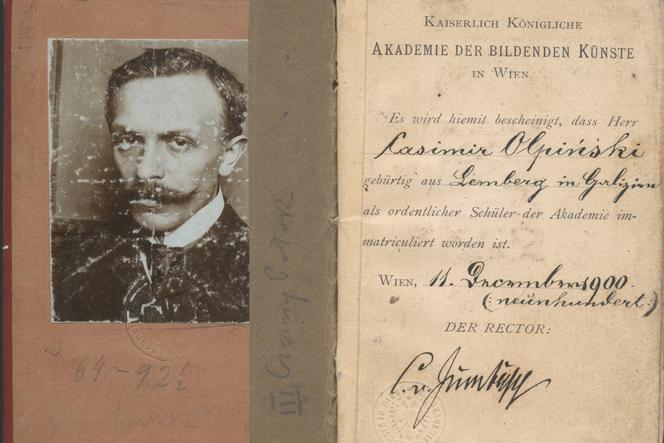 64-92½
III
KAISERLICH KÖNIGLICHE
AKADEMIE DER BILDENDEN KÜNSTE
IN WIEN.
Es wird hiemit bescheinigt, dass Herr
Casimir Olpiński
gebürtig aus Lemberg in Galizien
als ordentlicher Schüler der Akademie im-
matriculiert worden ist.
WIEN, 11. December 1900.
(: neunhundert :)
DER RECTOR: